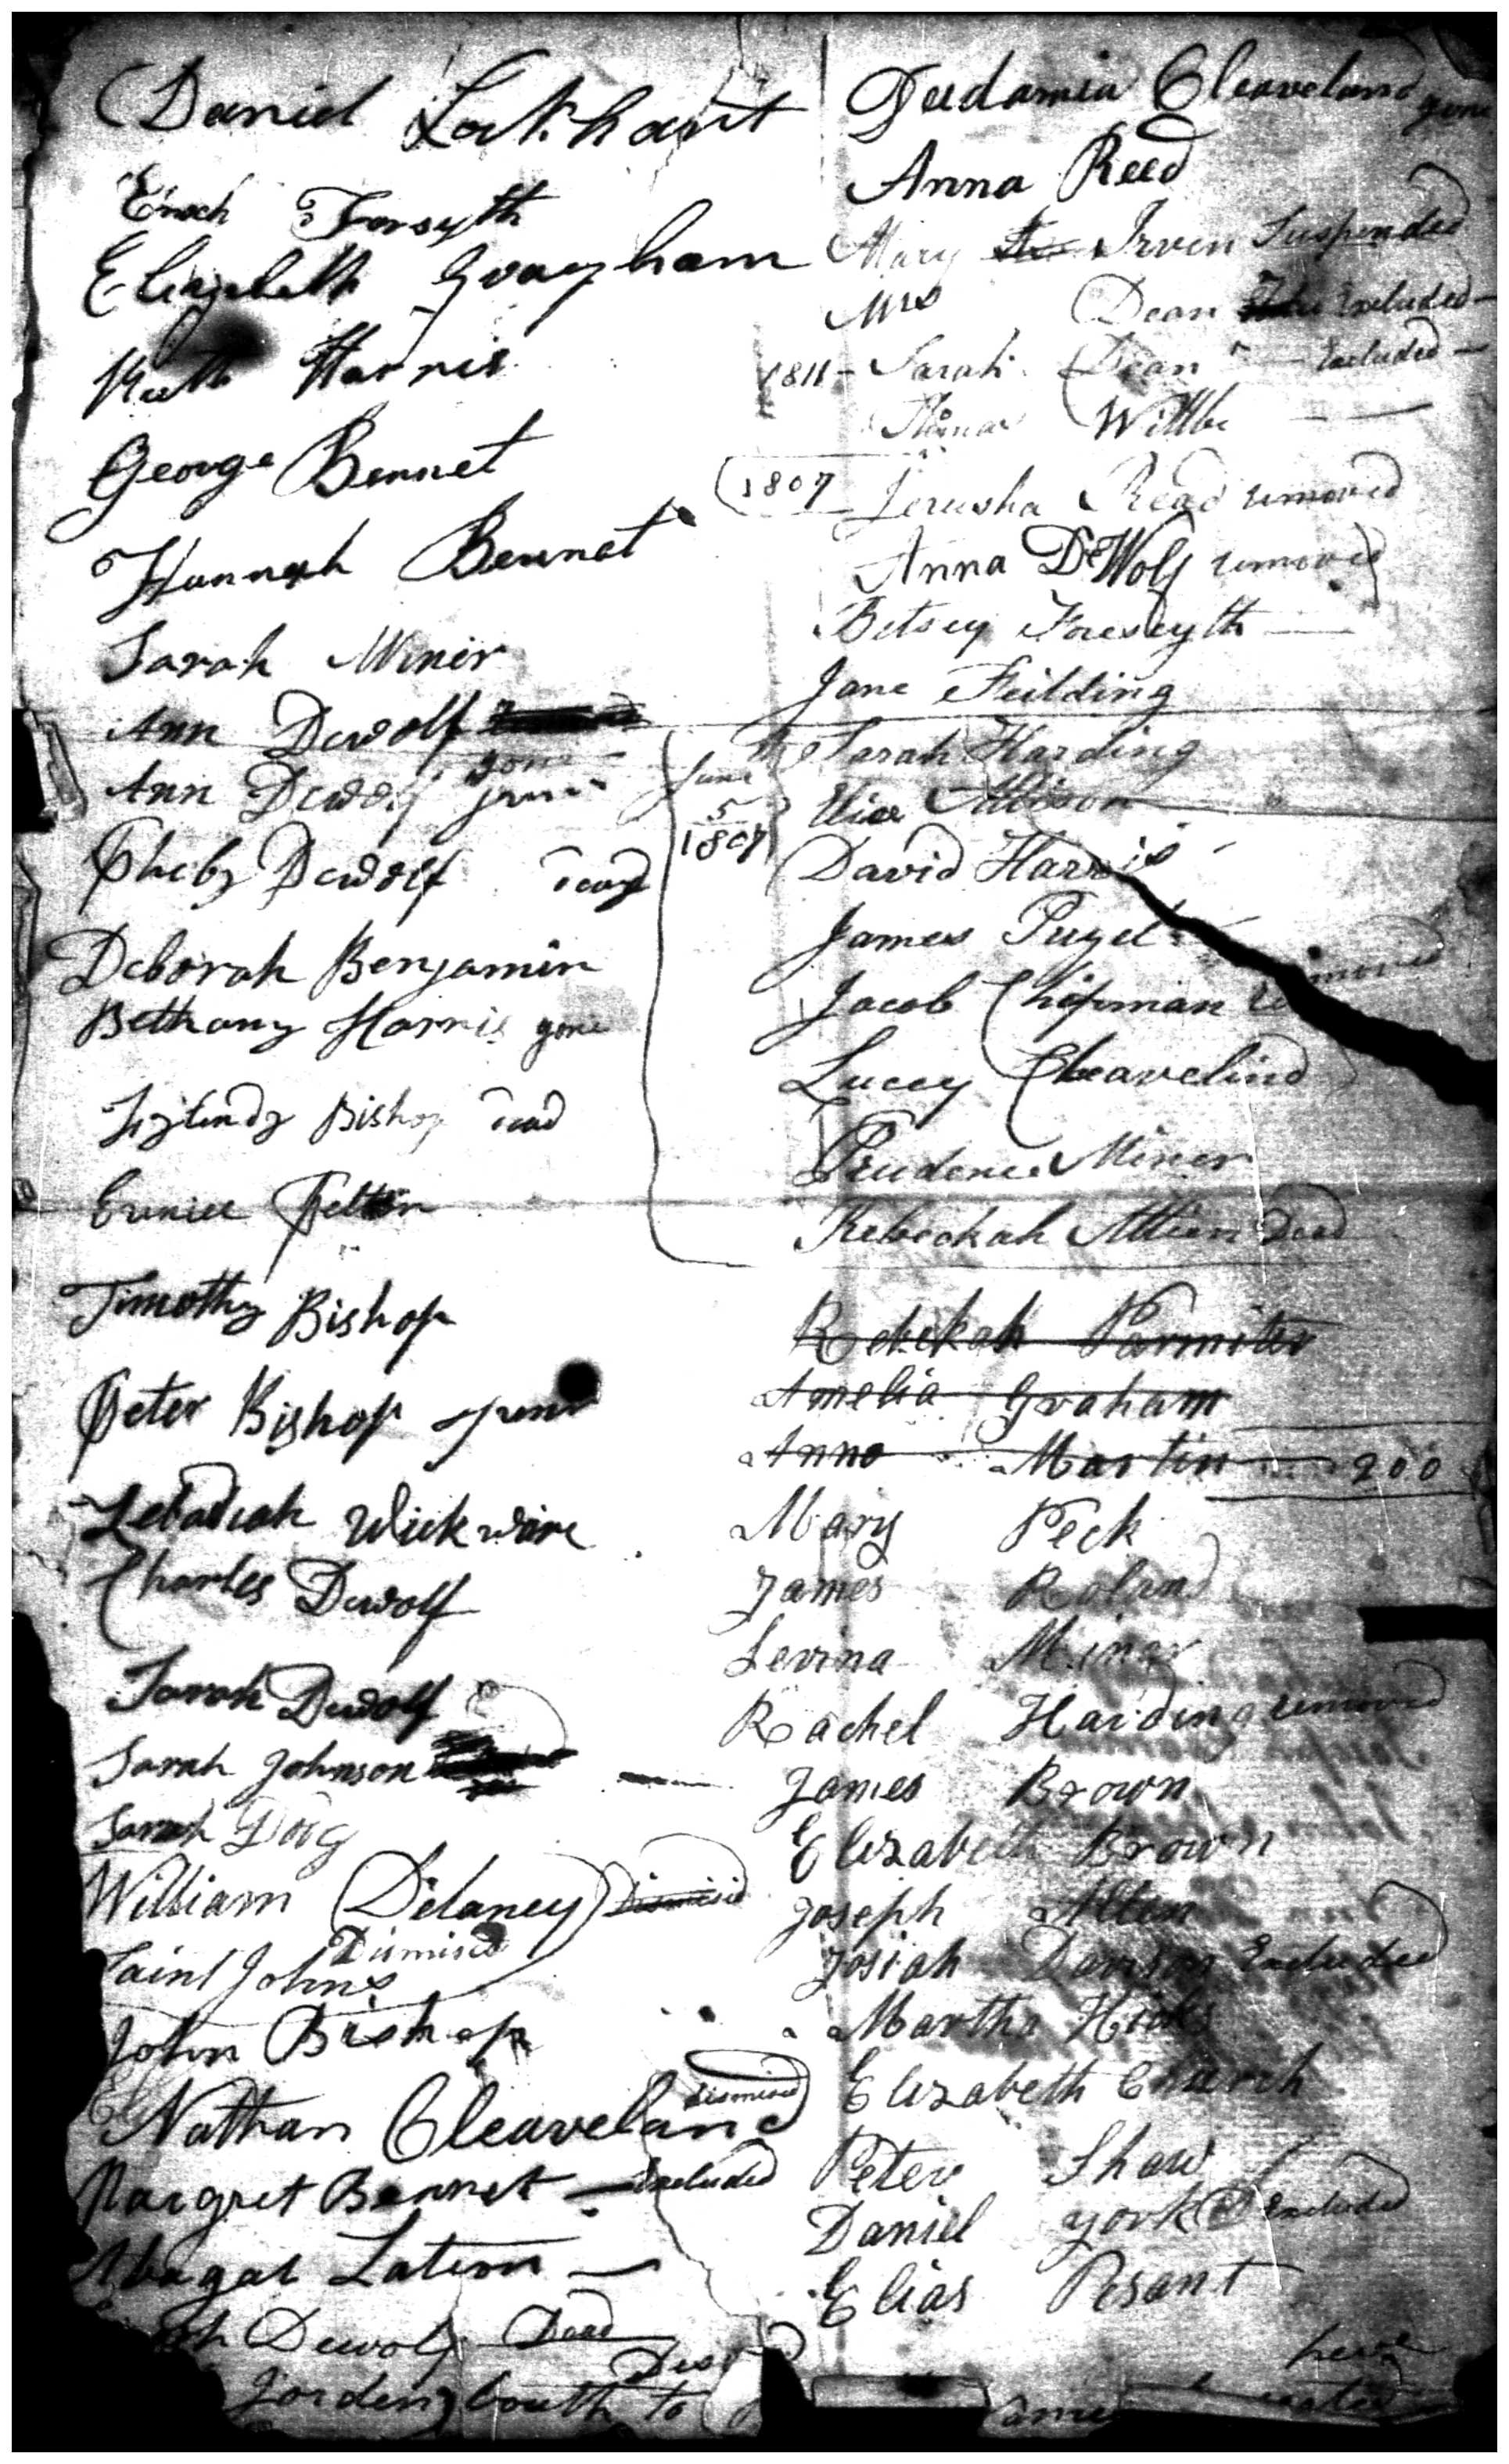 Daniel Lockhart
Enoch Forsyth
Elizabeth Graygham
Ruth Harris
George Bennet
Hannah Bennet
Sarah Miner
Ann Dewolf
Ann Dewolf gone
Pheby Dewolf Dead
Deborah Benjamin
Bethany Harris gone
Bishop Dead
Eunice Pelton
Timothy Bishop
Peter Bishop
Zebadiah Wickwire
Charles Dewolf
Sarah Dewolf
Sarah Johnson
Sarah Doog
William Delaney Dismised
Dismised
Saint Johns
John Bishop
Nathan Cleaveland Dismised
Margret Bennet Excluded
Abagal Latem
Dewolf Dead
Jorden south to
Deedamia Cleaveland gone
Anna Reed
Mary Irven Suspended
Mrs Dean Excluded
1811 Sarah Dean Excluded
Willbe
1807 Jerusha Read removed
Anna DeWolf removed
Betsey Foresyth
Jane Feilding
June 5 1807
Sarah Harding
Allison
David Harris
James Puzel
Jacob Chipman removed
Lucey Cleavelind
Prudence Miner
Rebeckah Allien Dead
Rebekah Parmiter
Amelia Graham
Anna Martin 200
Mary Peck
James Roland
Levina Miner
Rachel Harding removed
James Brown
Elizabeth Brown
Joseph Allen
Josiah Davison Excluded
Martha Hicks
Elizabeth Church
Peter Shaw
Daniel york Excluded
Elias Pesant
here